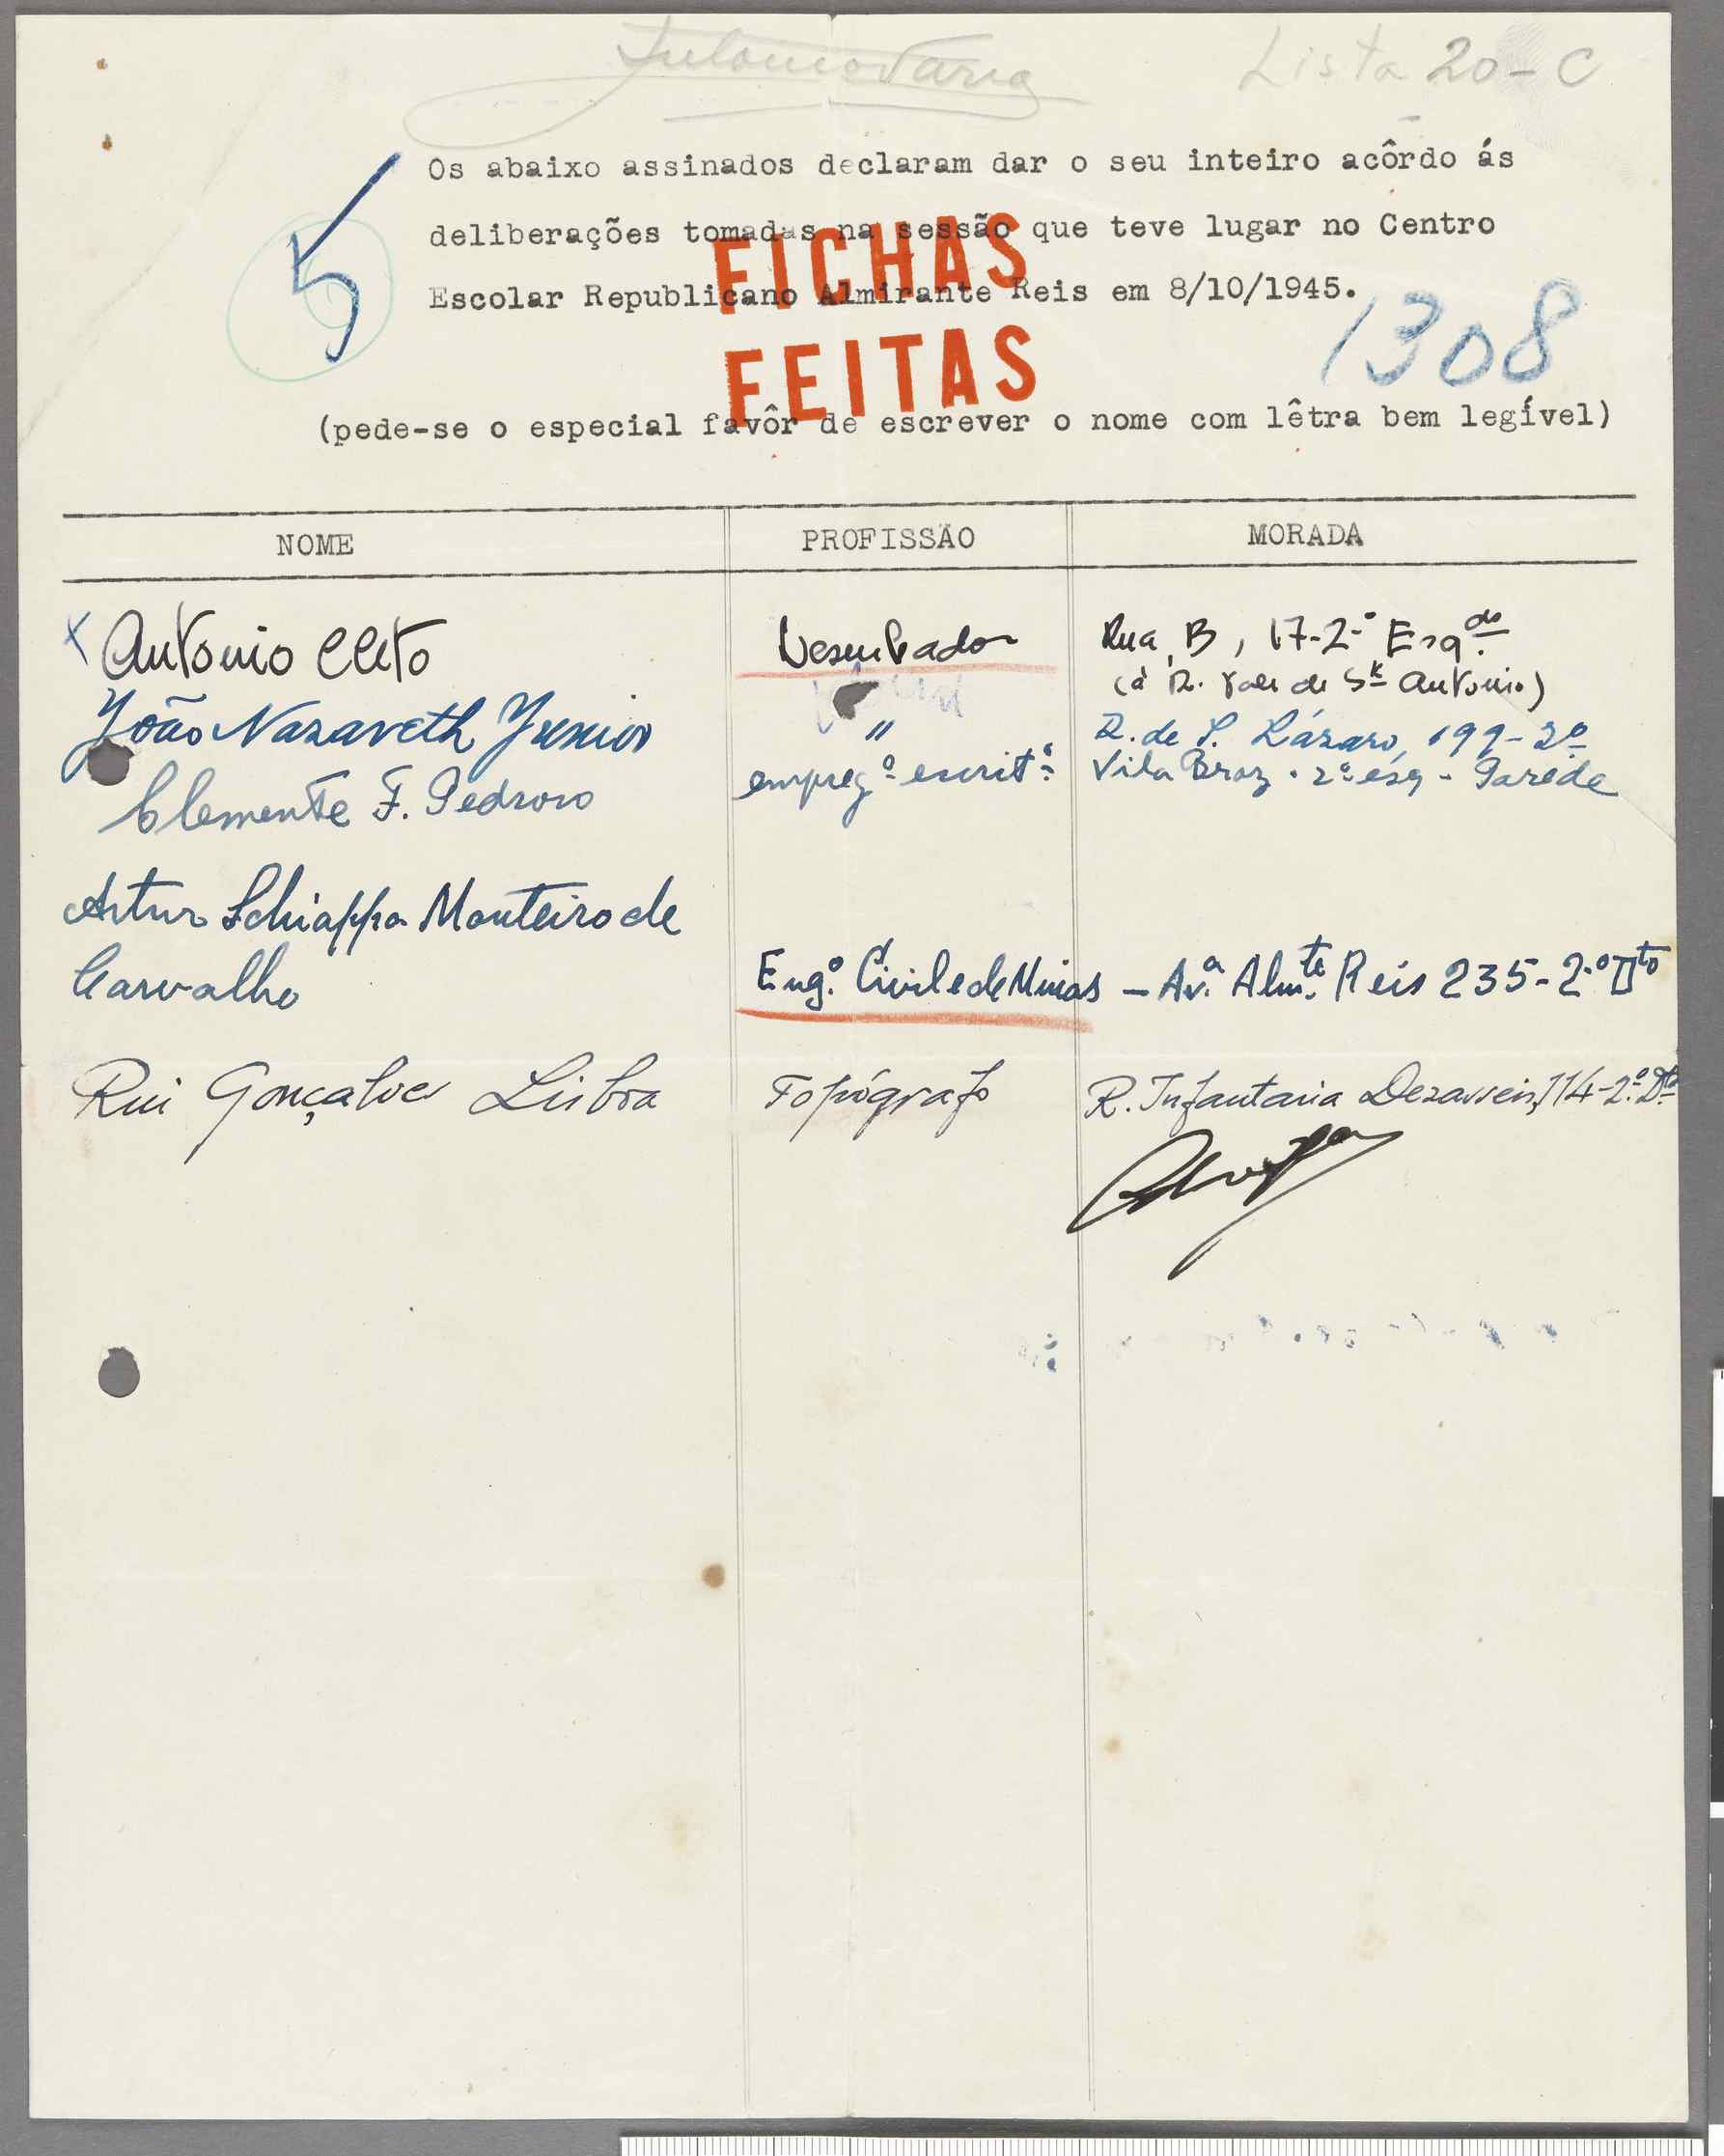 Lista 20-C
Os abaixo assinados declaram dar o seu inteiro acôrdo ás
5
deliberações tomadas na sessão que teve lugar no Centro
Escolar Republicano Almirante Reis em 8/10/1945.
FICHAS
FEITAS
1308
(pede-se o especial favôr de escrever o nome com lêtra bem legível)
NOME PROFISSÃO MORADA
x Antonio Cleto Desenhador Rua B, 17-2º Esqdo
(à R. Vale de Sto Antonio)
João Nazareth Junior " R. de S. Lázaro, 199-2º
Clemente F. Pedroso empregº escritº Vila Braz - 2º esq - Parede
Artur Schiappa Monteiro de
Carvalho Engº Civil e de Minas — Av.ª Almte Reis 235-2º Dto
Rui Gonçalves Lisboa Topógrafo R. Infantaria Dezasseis, 114-2º Dto